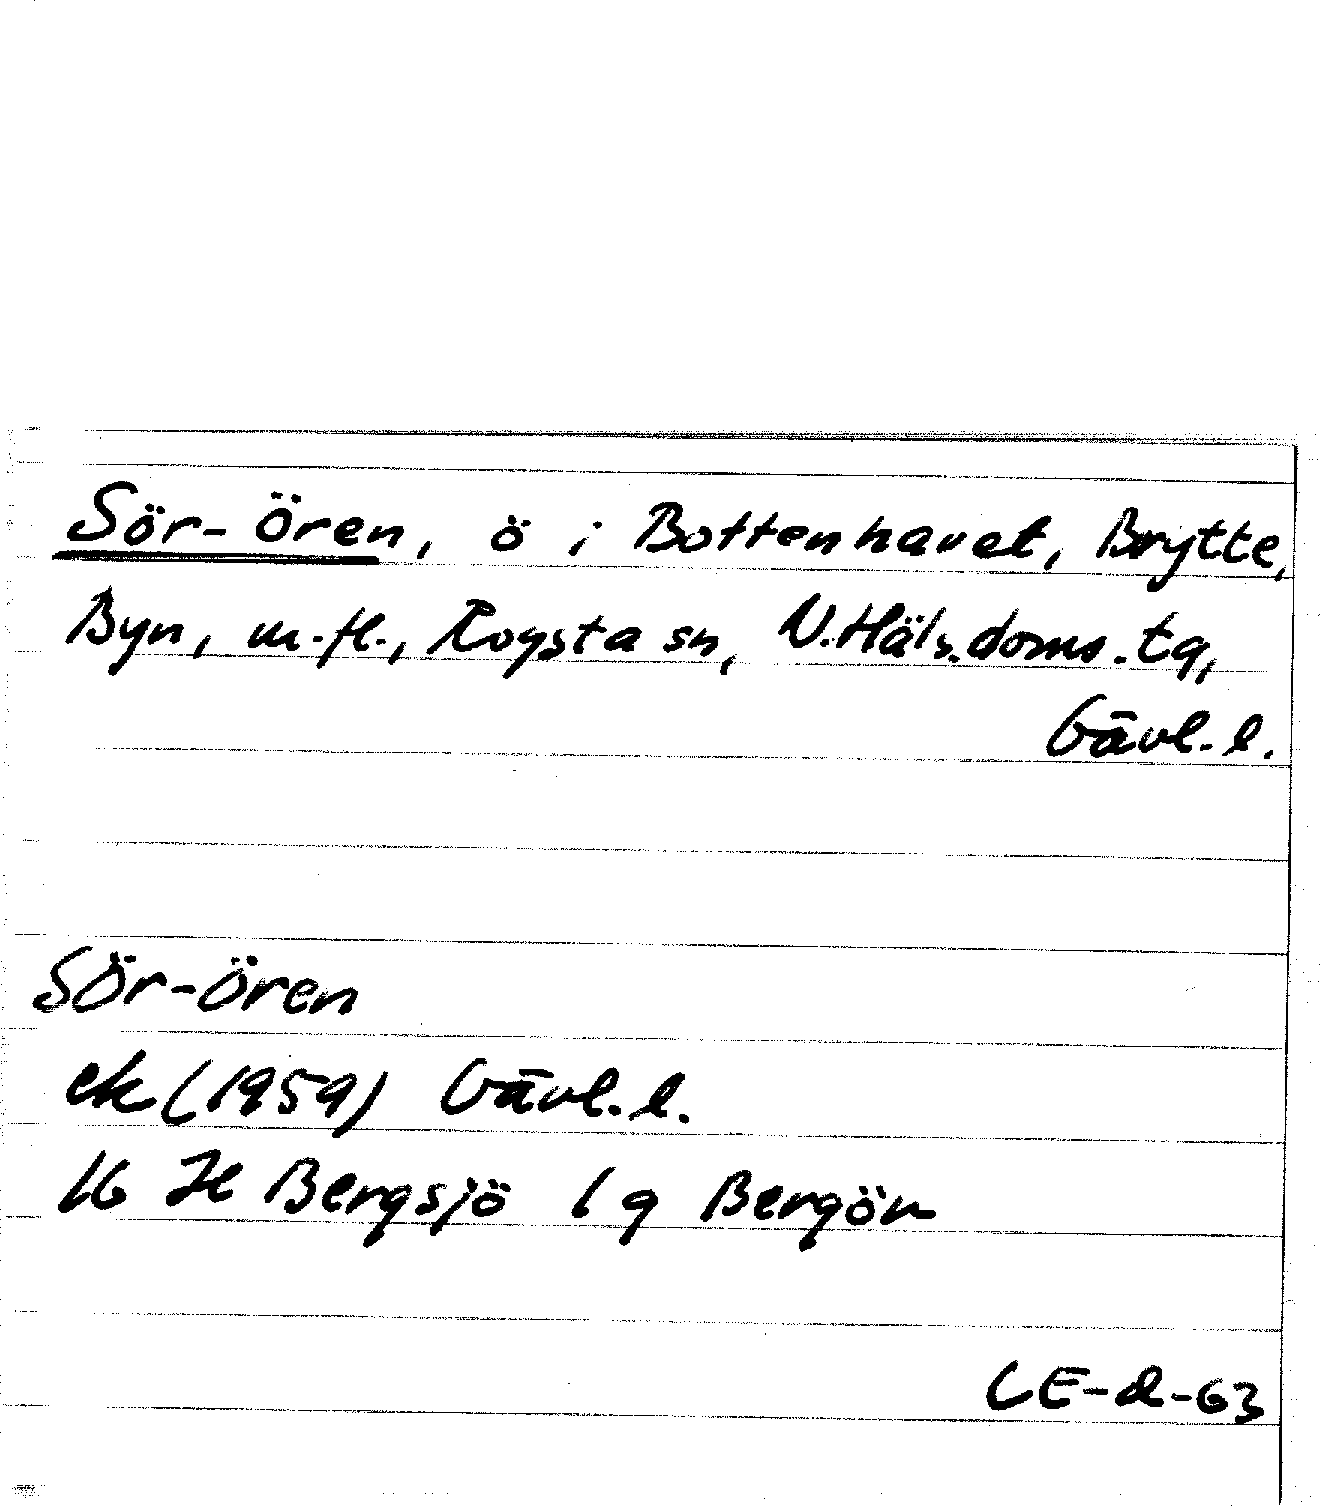 Sör-Ören, ö i Bottenhavet, Brytte,
Byn, m.fl., Rogsta sn, N.Häls.doms.tg,
Gävl.l.
Sör-Ören
ek (1959) Gävl.l.
16 H Bergsjö 1 g Bergön
CE-d-63